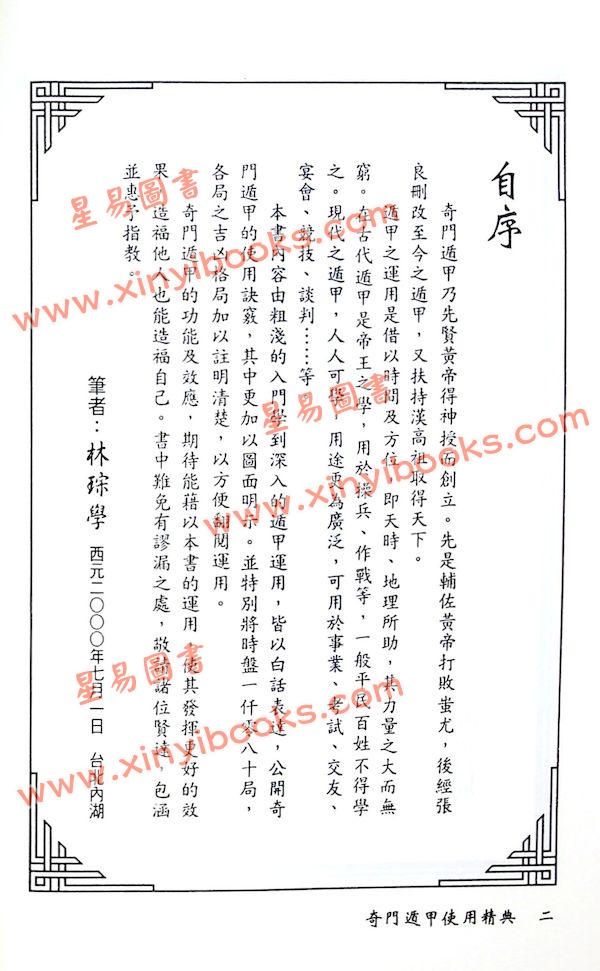 自序
奇門遁甲乃先賢黃帝得神授而創立。先是輔佐黃帝打敗蚩尤，後經張
良刪改至今之遁甲，又扶持漢高祖取得天下。
遁甲之運用是借以時間及方位，即天時、地理所助，其力量之大而無
窮。在古代遁甲是帝王之學，用於操兵、作戰等，一般平民百姓不得學
之。現代之遁甲，人人可學，用途更為廣泛，可用於事業、考試、交友、
宴會、競技、談判……等。
本書內容由粗淺的入門學到深入的遁甲運用，皆以白話表達，公開奇
門遁甲的使用訣竅，其中更加以圖面明示。並特別將時盤一仟零八十局，
各局之吉凶格局加以註明清楚，以方便翻閱運用。
奇門遁甲的功能及效應，期待能藉以本書的運用，使其發揮更好的效
果，造福他人也能造福自己。書中難免有謬漏之處，敬請諸位賢達，包涵
並惠予指教。
筆者：林琮學 西元二〇〇〇年七月二一日 台北內湖
奇門遁甲使用精典 二
星易圖書
www.xinyibooks.com
星易圖書
www.xinyibooks.com
星易圖書
www.xinyibooks.com